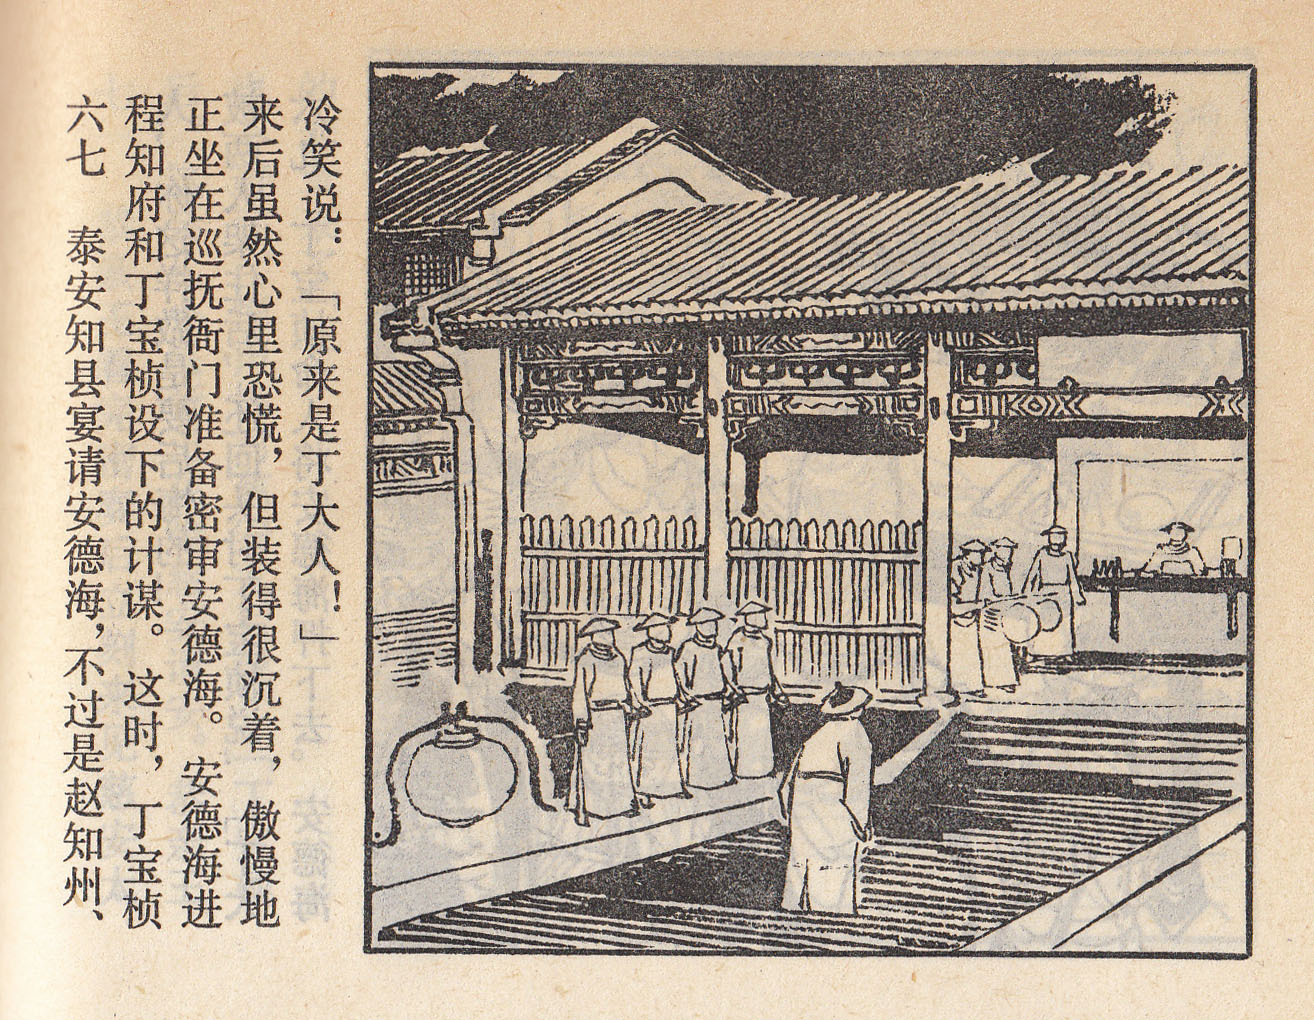 六七　泰安知县宴请安德海，不过是赵知州、
程知府和丁宝桢设下的计谋。这时，丁宝桢
正坐在巡抚衙门准备密审安德海。安德海进
来后虽然心里恐慌，但装得很沉着，傲慢地
冷笑说：「原来是丁大人！」